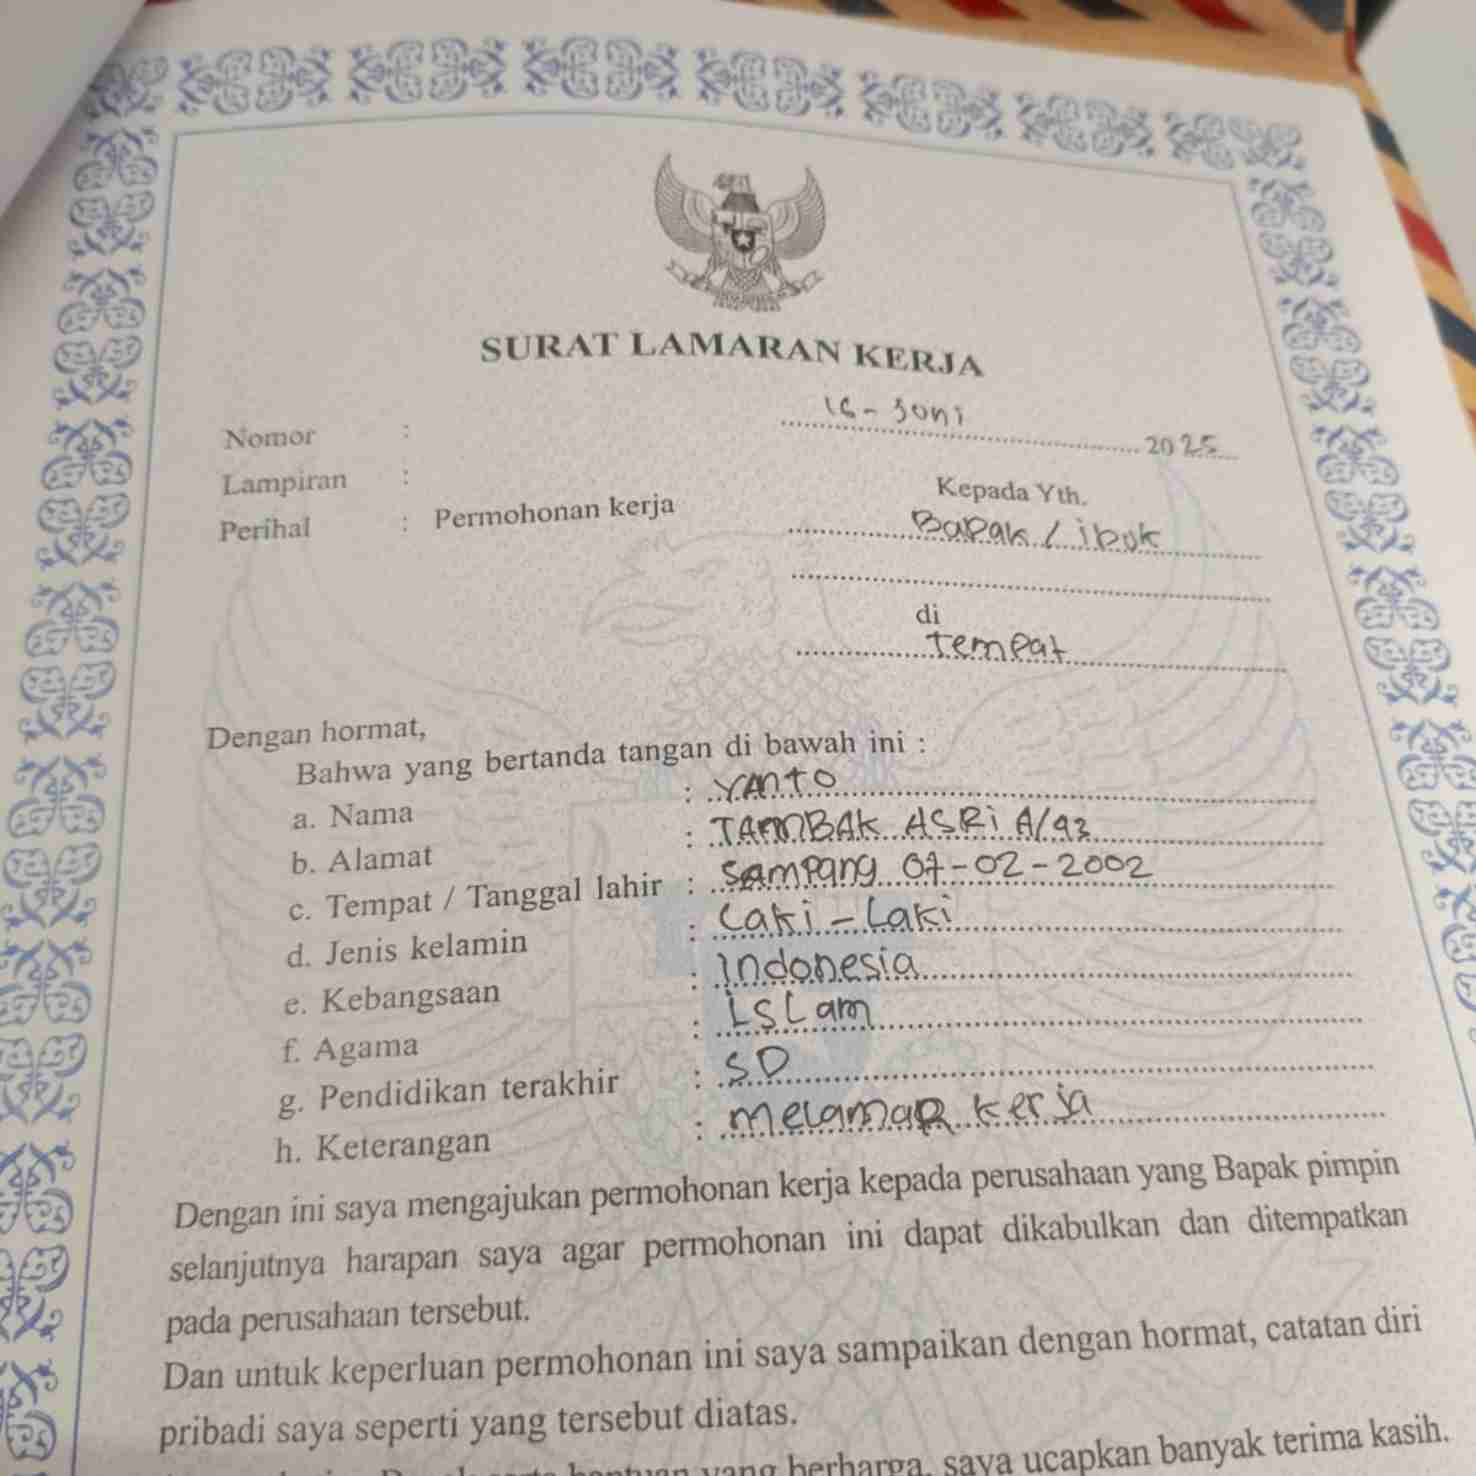 SURAT LAMARAN KERJA
16 - Juni 2025
Nomor :
Lampiran :
Perihal : Permohonan kerja
Kepada Yth.
Bapak / ibuk
di
Tempat
Dengan hormat,
Bahwa yang bertanda tangan di bawah ini :
a. Nama : YANTO
b. Alamat : TAMBAK ASRi A/93
c. Tempat / Tanggal lahir : Sampang 07-02-2002
d. Jenis kelamin : Laki - Laki
e. Kebangsaan : Indonesia
f. Agama : isLam
g. Pendidikan terakhir : SD
h. Keterangan : meLamaR kerja
Dengan ini saya mengajukan permohonan kerja kepada perusahaan yang Bapak pimpin
selanjutnya harapan saya agar permohonan ini dapat dikabulkan dan ditempatkan
pada perusahaan tersebut.
Dan untuk keperluan permohonan ini saya sampaikan dengan hormat, catatan diri
pribadi saya seperti yang tersebut diatas.
bantuan yang berharga, saya ucapkan banyak terima kasih.